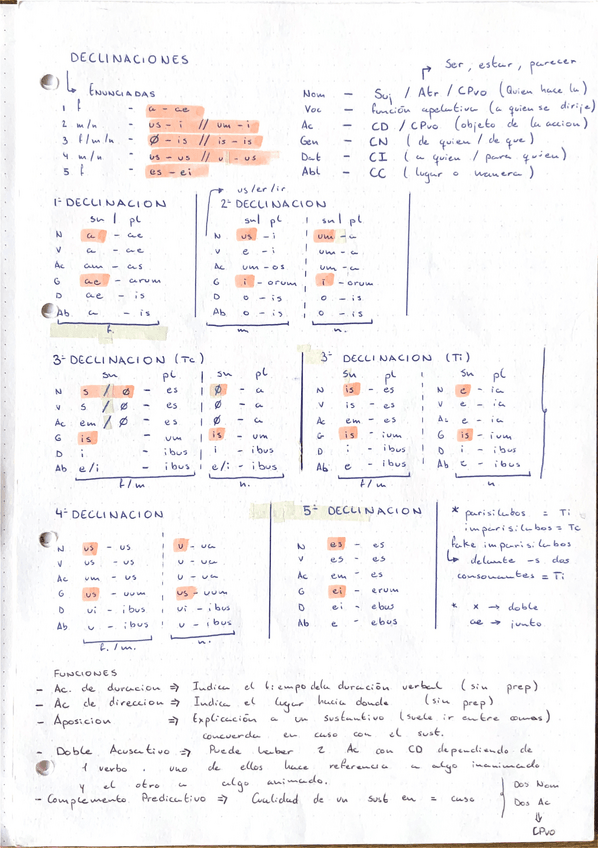 DECLINACIONES
Ser, estar, parecer
ENUNCIADAS
1 f - a - ae
2 m/n - us - i // um - i
3 f/m/n - Ø - is // is - is
4 m/n - us - us // u - us
5 f - es - ei
Nom - Suj / Atr / CPvo (Quien hace la)
Voc - función apelativa (a quien se dirije)
Ac - CD / CPvo (objeto de la accion)
Gen - CN (de quien / de que)
Dat - CI (a quien / para quien)
Abl - CC (lugar o manera)
1ª DECLINACION
sn | pl
N a - ae
V a - ae
Ac am - as
G ae - arum
D ae - is
Ab a - is
f.
us/er/ir
2ª DECLINACION
sn | pl sn | pl
N us - i um - a
V e - i um - a
Ac um - os um - a
G i - orum i - orum
D o - is o - is
Ab o - is o - is
m n.
3ª DECLINACION (Tc)
sn pl sn pl
N s / Ø - es Ø - a
V s / Ø - es Ø - a
Ac em / Ø - es Ø - a
G is - um is - um
D i - ibus i - ibus
Ab e/i - ibus e/i - ibus
f/m n.
3ª DECLINACION (Ti)
sn pl sn pl
N is - es e - ia
V is - es e - ia
Ac em - es e - ia
G is - ium is - ium
D i - ibus i - ibus
Ab e - ibus e - ibus
f/m n.
4ª DECLINACION
N us - us u - ua
V us - us u - ua
Ac um - us u - ua
G us - uum us - uum
D ui - ibus ui - ibus
Ab u - ibus u - ibus
f./m. n.
5ª DECLINACION
N es - es
V es - es
Ac em - es
G ei - erum
D ei - ebus
Ab e - ebus
* parisilabos = Ti
imparisilabos = Tc
fake imparisilabos
delante -s dos
consonantes = Ti
* x → doble
ae → junto
FUNCIONES
- Ac. de duracion ⇒ Indica el tiempo de la duración verbal (sin prep)
- Ac de direccion ⇒ Indica el lugar hacia donde (sin prep)
- Aposicion ⇒ Explicación a un sustantivo (suele ir entre comas)
concuerda en caso con el sust.
- Doble Acusativo ⇒ Puede haber 2 Ac con CD dependiendo de
1 verbo. uno de ellos hace referencia a algo inanimado
y el otro a algo animado.
- Complemento Predicativo ⇒ Cualidad de un sust en = caso
Dos Nom
Dos Ac
⇓
CPvo